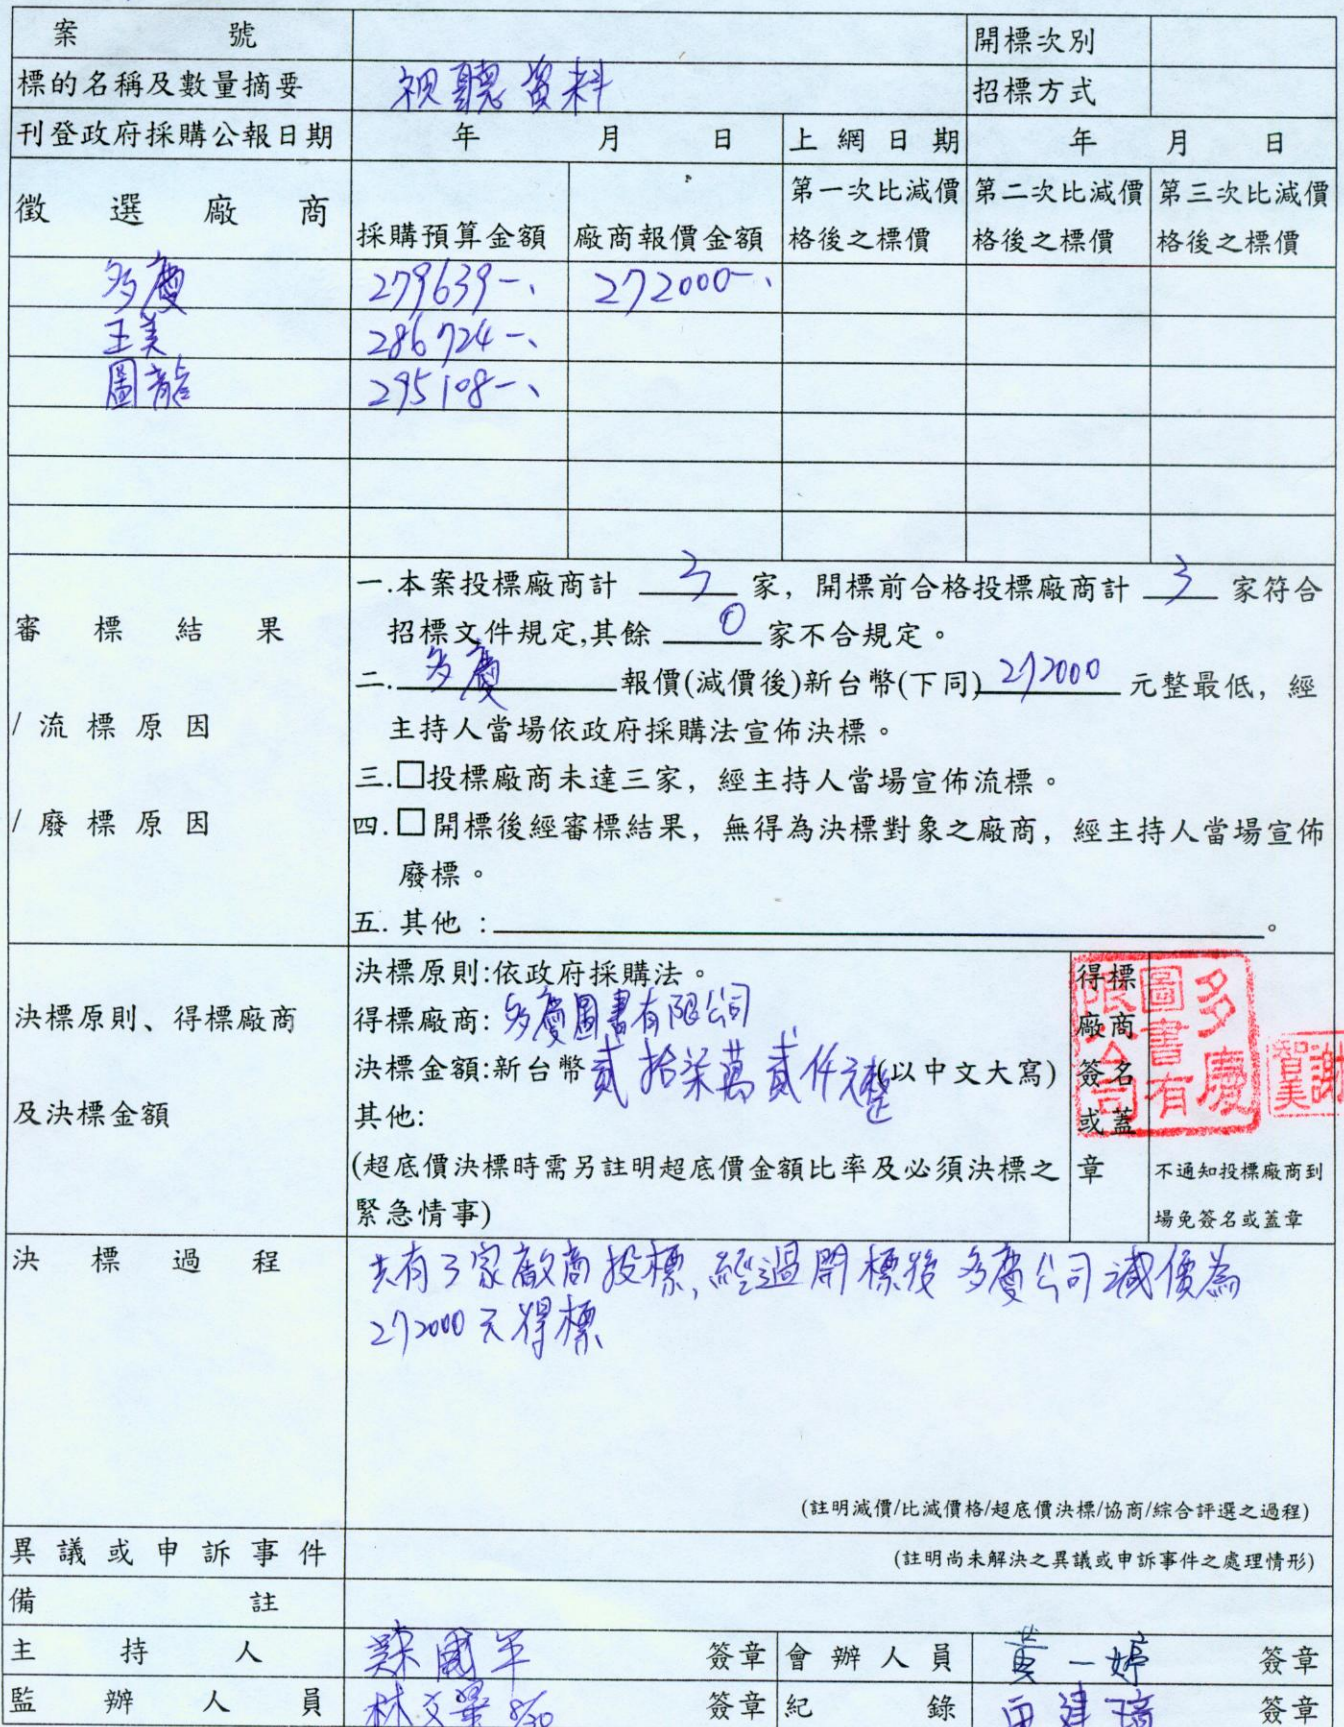 案 號 開標次別
標的名稱及數量摘要 視聽資料 招標方式
刊登政府採購公報日期 年 月 日 上網日期 年 月 日
徵選廠商 採購預算金額 廠商報價金額 第一次比減價格後之標價 第二次比減價格後之標價 第三次比減價格後之標價
多慶 279639-、 272000-、
王美 286724-、
圖龍 295108-、
審標結果
/流標原因
/廢標原因
一.本案投標廠商計 3 家，開標前合格投標廠商計 3 家符合
招標文件規定,其餘 0 家不合規定。
二.多慶 報價(減價後)新台幣(下同) 272000 元整最低，經
主持人當場依政府採購法宣佈決標。
三.□投標廠商未達三家，經主持人當場宣佈流標。
四.□開標後經審標結果，無得為決標對象之廠商，經主持人當場宣佈
廢標。
五.其他：。
決標原則、得標廠商
及決標金額
決標原則:依政府採購法。
得標廠商:多慶圖書有限公司
決標金額:新台幣貳拾柒萬貳仟元整(以中文大寫)
其他:
(超底價決標時需另註明超底價金額比率及必須決標之
緊急情事)
得標
廠商
簽名
或蓋
章
多慶
圖書有
限公司
謝
智美
不通知投標廠商到
場免簽名或蓋章
決標過程
共有3家廠商投標,經過開標後多慶公司減價為
272000元得標
(註明減價/比減價格/超底價決標/協商/綜合評選之過程)
異議或申訴事件 (註明尚未解決之異議或申訴事件之處理情形)
備註
主持人 國平 簽章 會辦人員 黃一婷 簽章
監辦人員 林文 8/30 簽章 紀錄 建 簽章